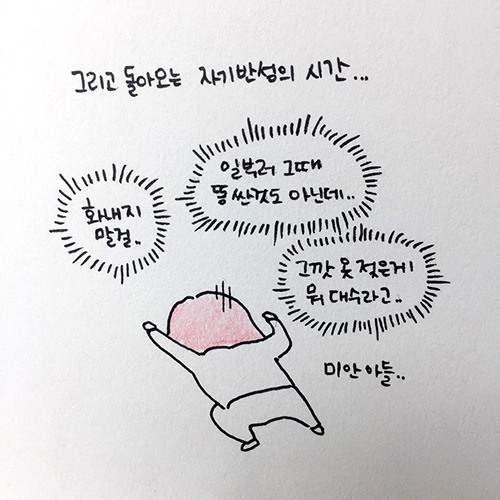 그리고 돌아오는 자기반성의 시간...
화내지
말걸..
일부러 그때
똥 싼것도 아닌데..
그깟 옷 젖은게
뭐 대수라고..
미안 아들..